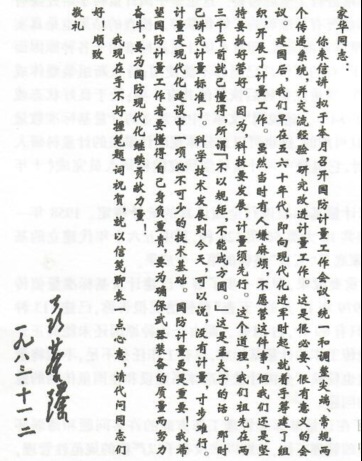 家华同志：
你来信讲，拟于本月召开国防计量工作会，统一和调整两端、常规两
个传递系统，并交流经验，研究改进计量工作，这是很必要、很有意义的会
议。建国后，我们是在五、六十年代，即向现代化进军时起，就着手筹建了组
织，开展了计量工作。虽然当时有人嫌麻烦，不愿管这件事，但我们还是坚
持要抓好管好。因为，科技要发展，计量须先行。这个道理，我们祖先在两
三千年前就已懂得，所谓“不以规矩，不能成方圆”，这是孟夫子的话。那时
已讲究计量标准了。科学技术发展到今天，可以说，没有计量，寸步难行。
计量是现代化建设中一必不可少的技术基础。国防计量尤其重要，我希
望国防计量工作者要懂得自己身负重责，要为确保武器装备的质量而努力
奋斗，要为国防现代化继续贡献力量！
我现在手不好握笔题词祝贺，就以信笺聊表一点心意，请代问同志们
敬礼！
聂荣臻
一九八三·十一·二